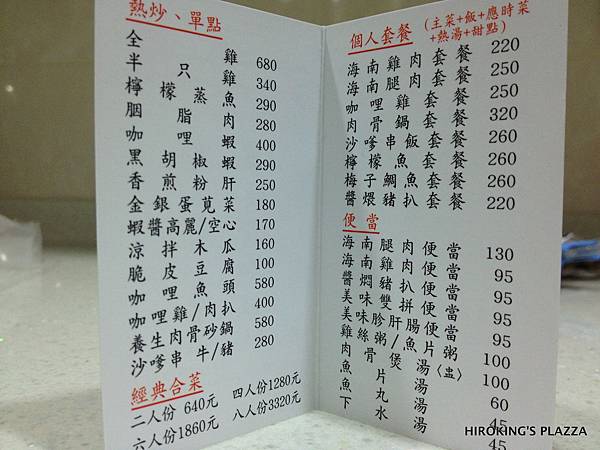 熱炒、單點
全只雞 680
半只雞 340
檸檬蒸魚 290
胭脂肉 280
咖哩蝦 400
黑胡椒蝦 290
香煎粉肝 250
金銀蛋莧菜 180
蝦醬高麗/空心 170
涼拌木瓜 160
脆皮豆腐 100
咖哩魚頭 580
咖哩雞/肉扒 400
養生肉骨砂鍋 580
沙嗲串 牛/豬 280
經典合菜
二人份 640元 四人份1280元
六人份1860元 八人份3320元
個人套餐 (主菜+飯+應時菜
+熱湯+甜點)
海南雞肉套餐 220
海南腿肉套餐 250
咖哩雞套餐 250
肉骨鍋套餐 320
沙嗲串飯套餐 260
檸檬魚套餐 260
梅子鯛魚套餐 260
醬煨豬扒套餐 220
便當
海南腿肉便當 130
海南雞肉便當 95
醬燜豬扒便當 95
美味雙拼便當 95
美味胗肝/腸片 100
雞絲粥(盅) 100
肉骨煲湯 60
魚片湯 45
魚丸湯 45
下水湯
HIROKING'S PLAZZA